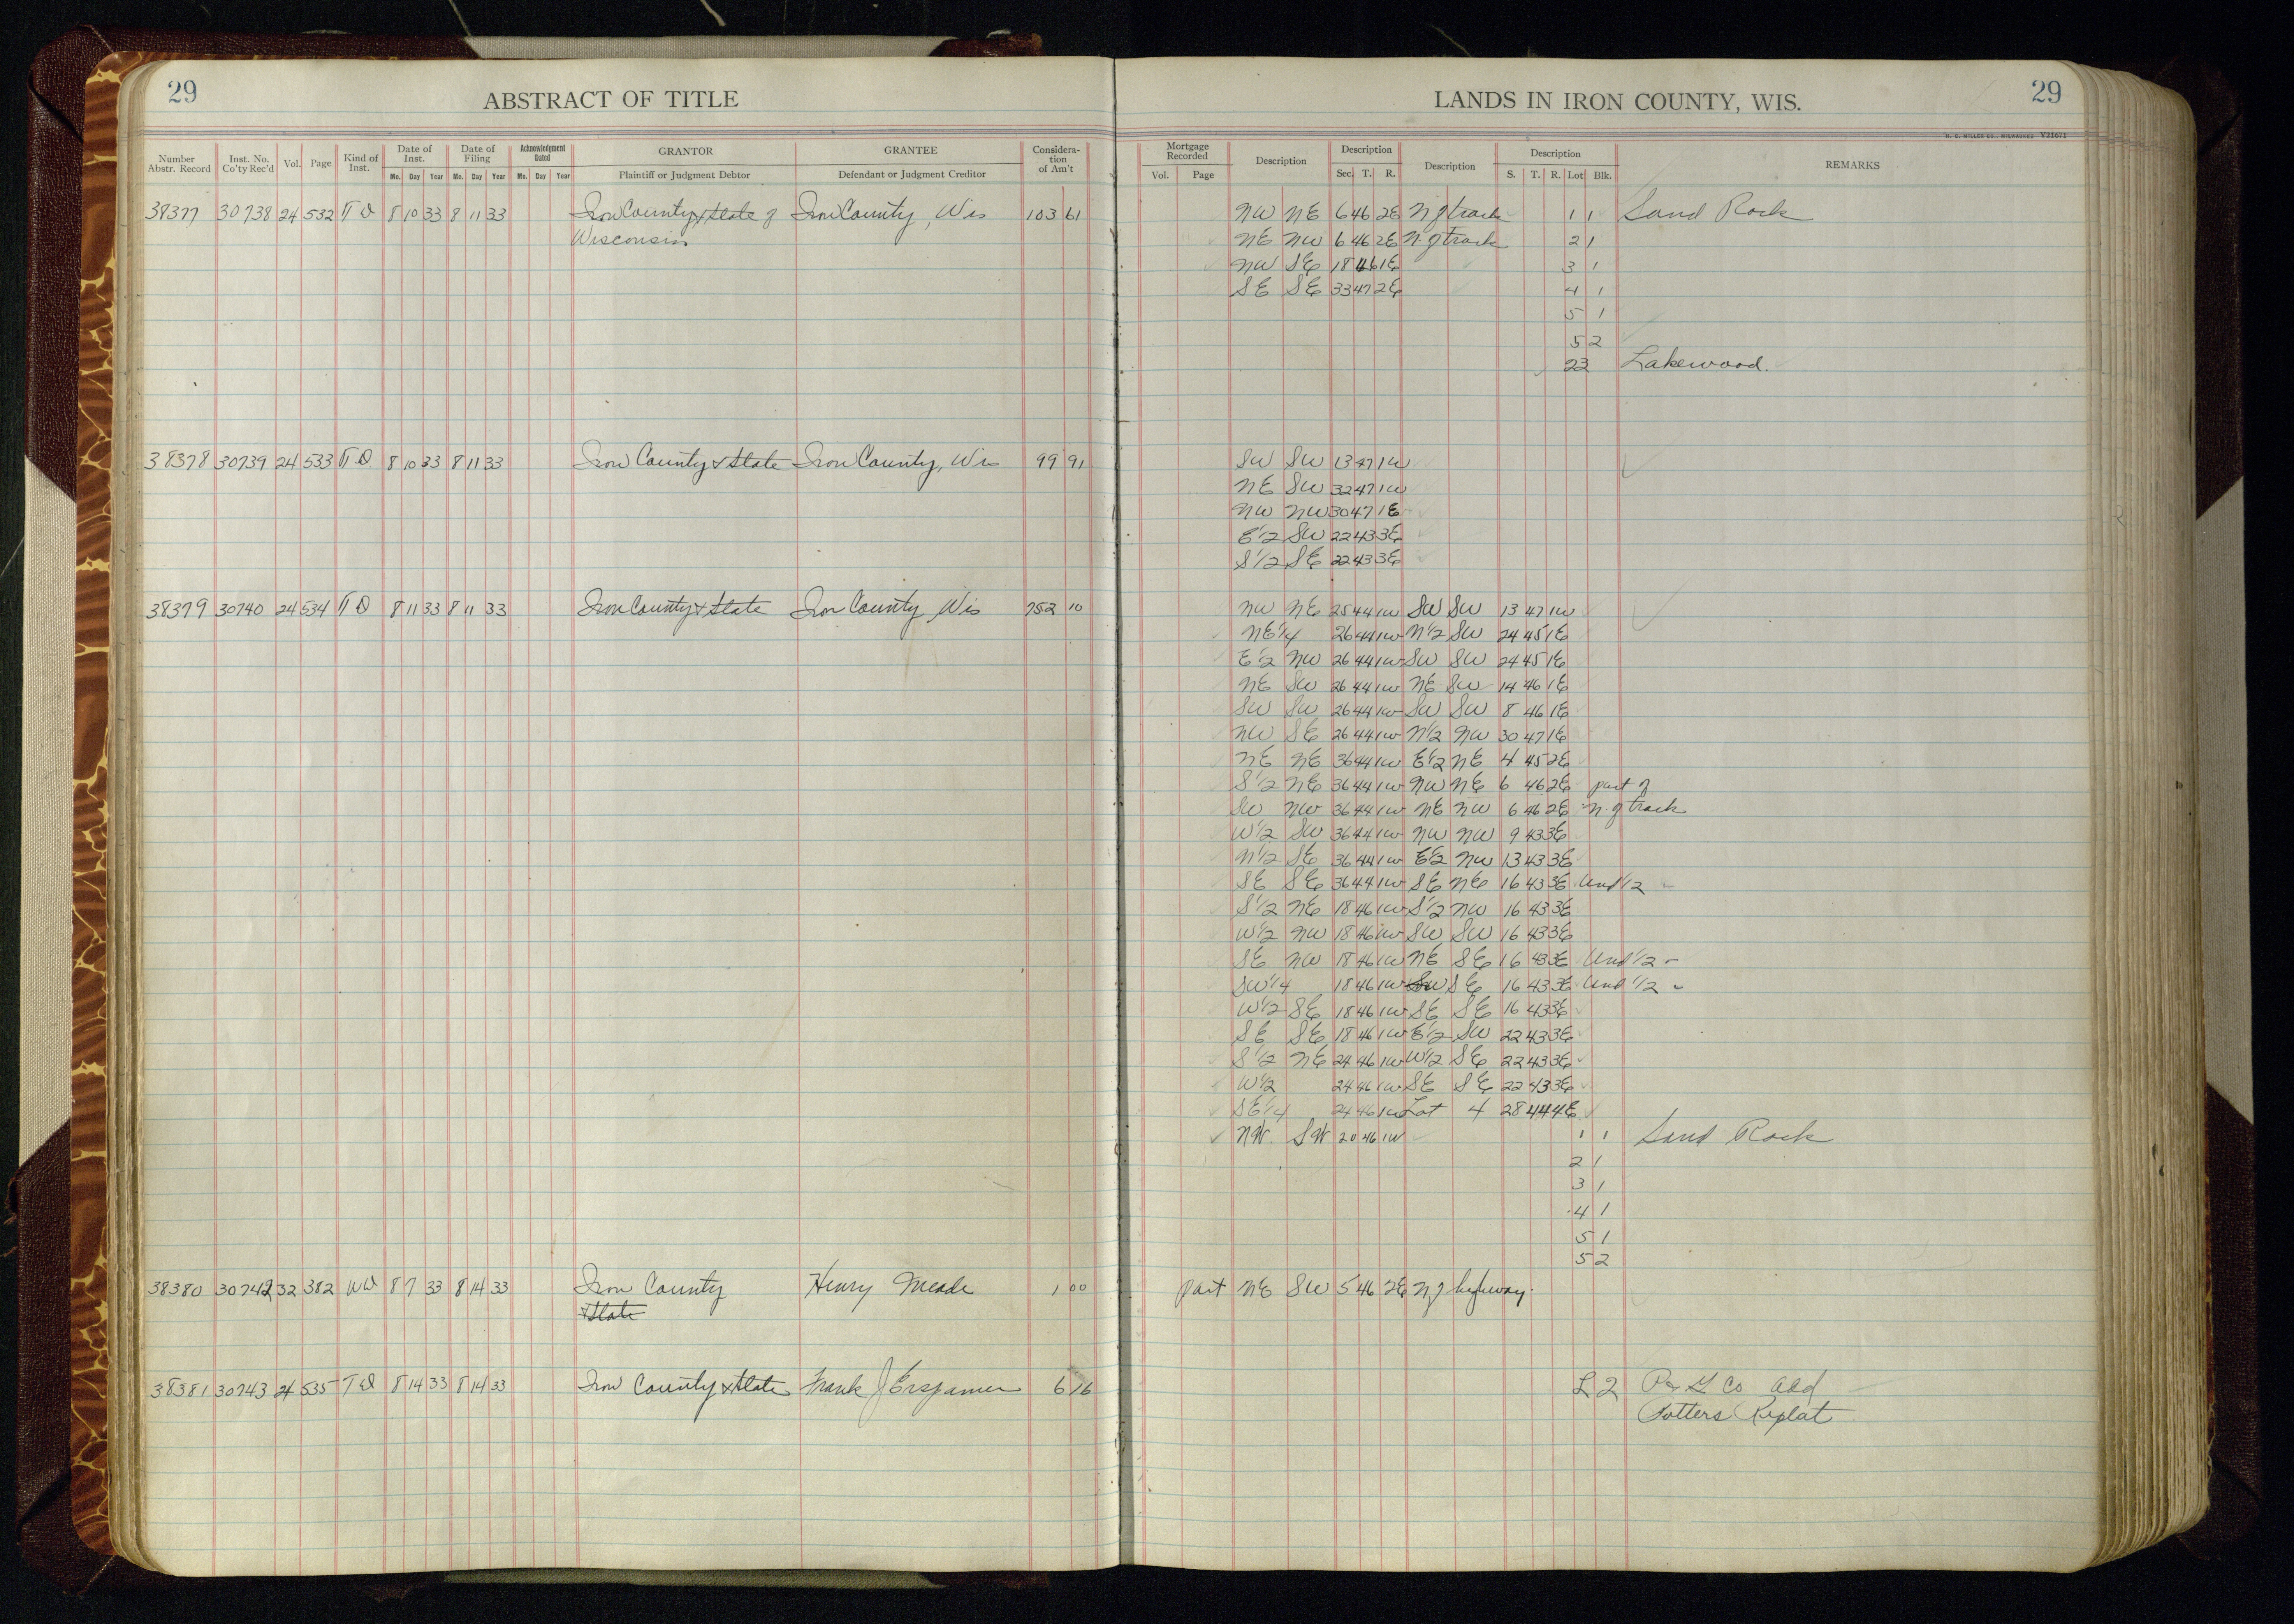 29
ABSTRACT OF TITLE
LANDS IN IRON COUNTY, WIS.
29
H. C. MILLER CO., MILWAUKEE Y21671
Number Abstr. Record Inst. No. Co'ty Rec'd Vol. Page Kind of Inst. Date of Inst. Mo. Day Year Date of Filing Mo. Day Year Acknowledgment Dated Mo. Day Year GRANTOR Plaintiff or Judgment Debtor GRANTEE Defendant or Judgment Creditor Considera-tion of Am't
Mortgage Recorded Vol. Page Description Description Sec. T. R. Description Description S. T. R. Lot Blk. REMARKS
38377 30738 24 532 T D 8 10 33 8 11 33 Iron County & State of Iron County, Wis 103 61 NW NE 6 46 2E N of track 1 1 Sand Rock
Wisconsin NE NW 6 46 2E N of track 2 1
NW SE 18 46 1E 3 1
SE SE 33 47 2E 4 1
5 1
5 2
23 Lakewood.
38378 30739 24 533 T D 8 10 33 8 11 33 Iron County & State Iron County, Wis 99 91 SW SW 13 47 1W
NE SW 32 47 1W
NW NW 30 47 1E
E½ SW 22 43 3E
S½ SE 22 43 3E
38379 30740 24 534 T D 8 11 33 8 11 33 Iron County & State Iron County, Wis 752 10 NW NE 25 44 1W SW SW 13 47 1W
NE¼ 26 44 1W N½ SW 24 45 1E
E½ NW 26 44 1W SW SW 24 45 1E
NE SW 26 44 1W NE SW 14 46 1E
SW SW 26 44 1W SW SW 8 46 1E
NW SE 26 44 1W N½ NW 30 47 1E
NE NE 36 44 1W E½ NE 4 45 2E
S½ NE 36 44 1W NW NE 6 46 2E part of
SW NW 36 44 1W NE NW 6 46 2E N of track
W½ SW 36 44 1W NW NW 9 43 3E
N½ SE 36 44 1W E½ NW 13 43 3E
SE SE 36 44 1W SE NE 16 43 3E Und ½
S½ NE 18 46 1W S½ NW 16 43 3E
W½ NW 18 46 1W SW SW 16 43 3E
SE NW 18 46 1W NE SE 16 43 3E Und ½
SW¼ 18 46 1W SW SE 16 43 3E Und ½
W½ SE 18 46 1W SE SE 16 43 3E
SE SE 18 46 1W E½ SW 22 43 3E
S½ NE 24 46 1W W½ SE 22 43 3E
W½ 24 46 1W SE SE 22 43 3E
SE¼ 24 46 1W Lot 4 28 44 4E
NW. SW 20 46 1W 1 1 Sand Rock
2 1
3 1
4 1
5 1
5 2
38380 30742 32 382 WD 8 7 33 8 14 33 Iron County Henry Meade 1 00 part NE SW 5 46 2E N of highway.
& State
38381 30743 24 535 T D 8 14 33 8 14 33 Iron County & State Frank J Erspamer 6 16 L 2 Co Add
Potters Replat